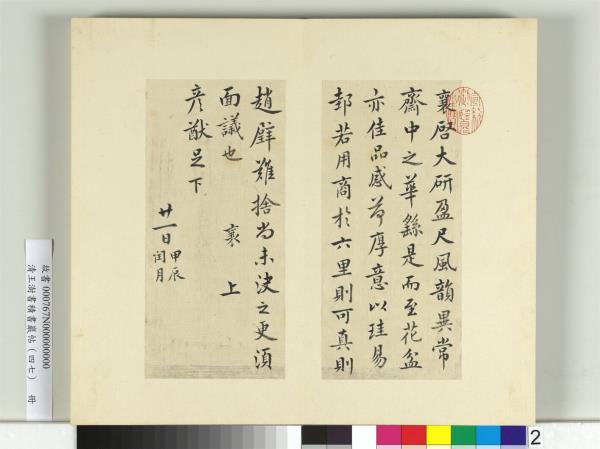 襄啓大研盈尺風韻異常
齋中之華繇是而至花盆
亦佳品感荷厚意以珪易
邽若用商於六里則可真則
趙璧難捨尚未決之更須
面議也 襄 上
彥猷足下
廿一日 甲辰
閏月
故書 000767N000000000
清王澍書積書巖帖(四七) 冊
2